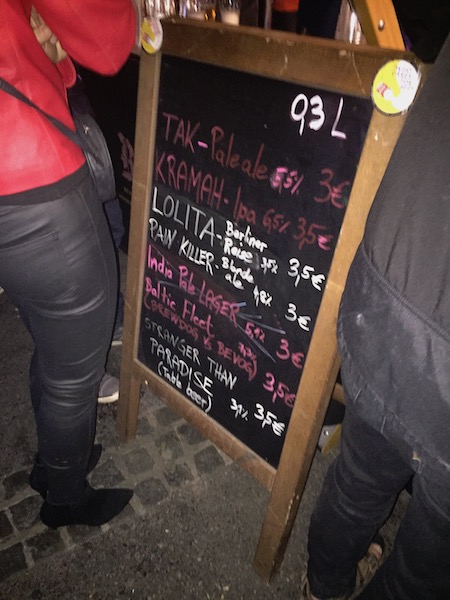 0,3 L
TAK - Pale ale 5,5% 3€
KRAMAH - Ipa 6,5% 3,5€
LOLITA - Berliner Reise 3,5% 3,5€
PAIN KILLER - Blonde ale 4,8% 3€
India Pale LAGER 5,1% 3€
Baltic Fleet
(BREWDOG & BEVOG) 3,5€
STRANGER THAN
PARADISE
(table beer) 3,1% 3,5€